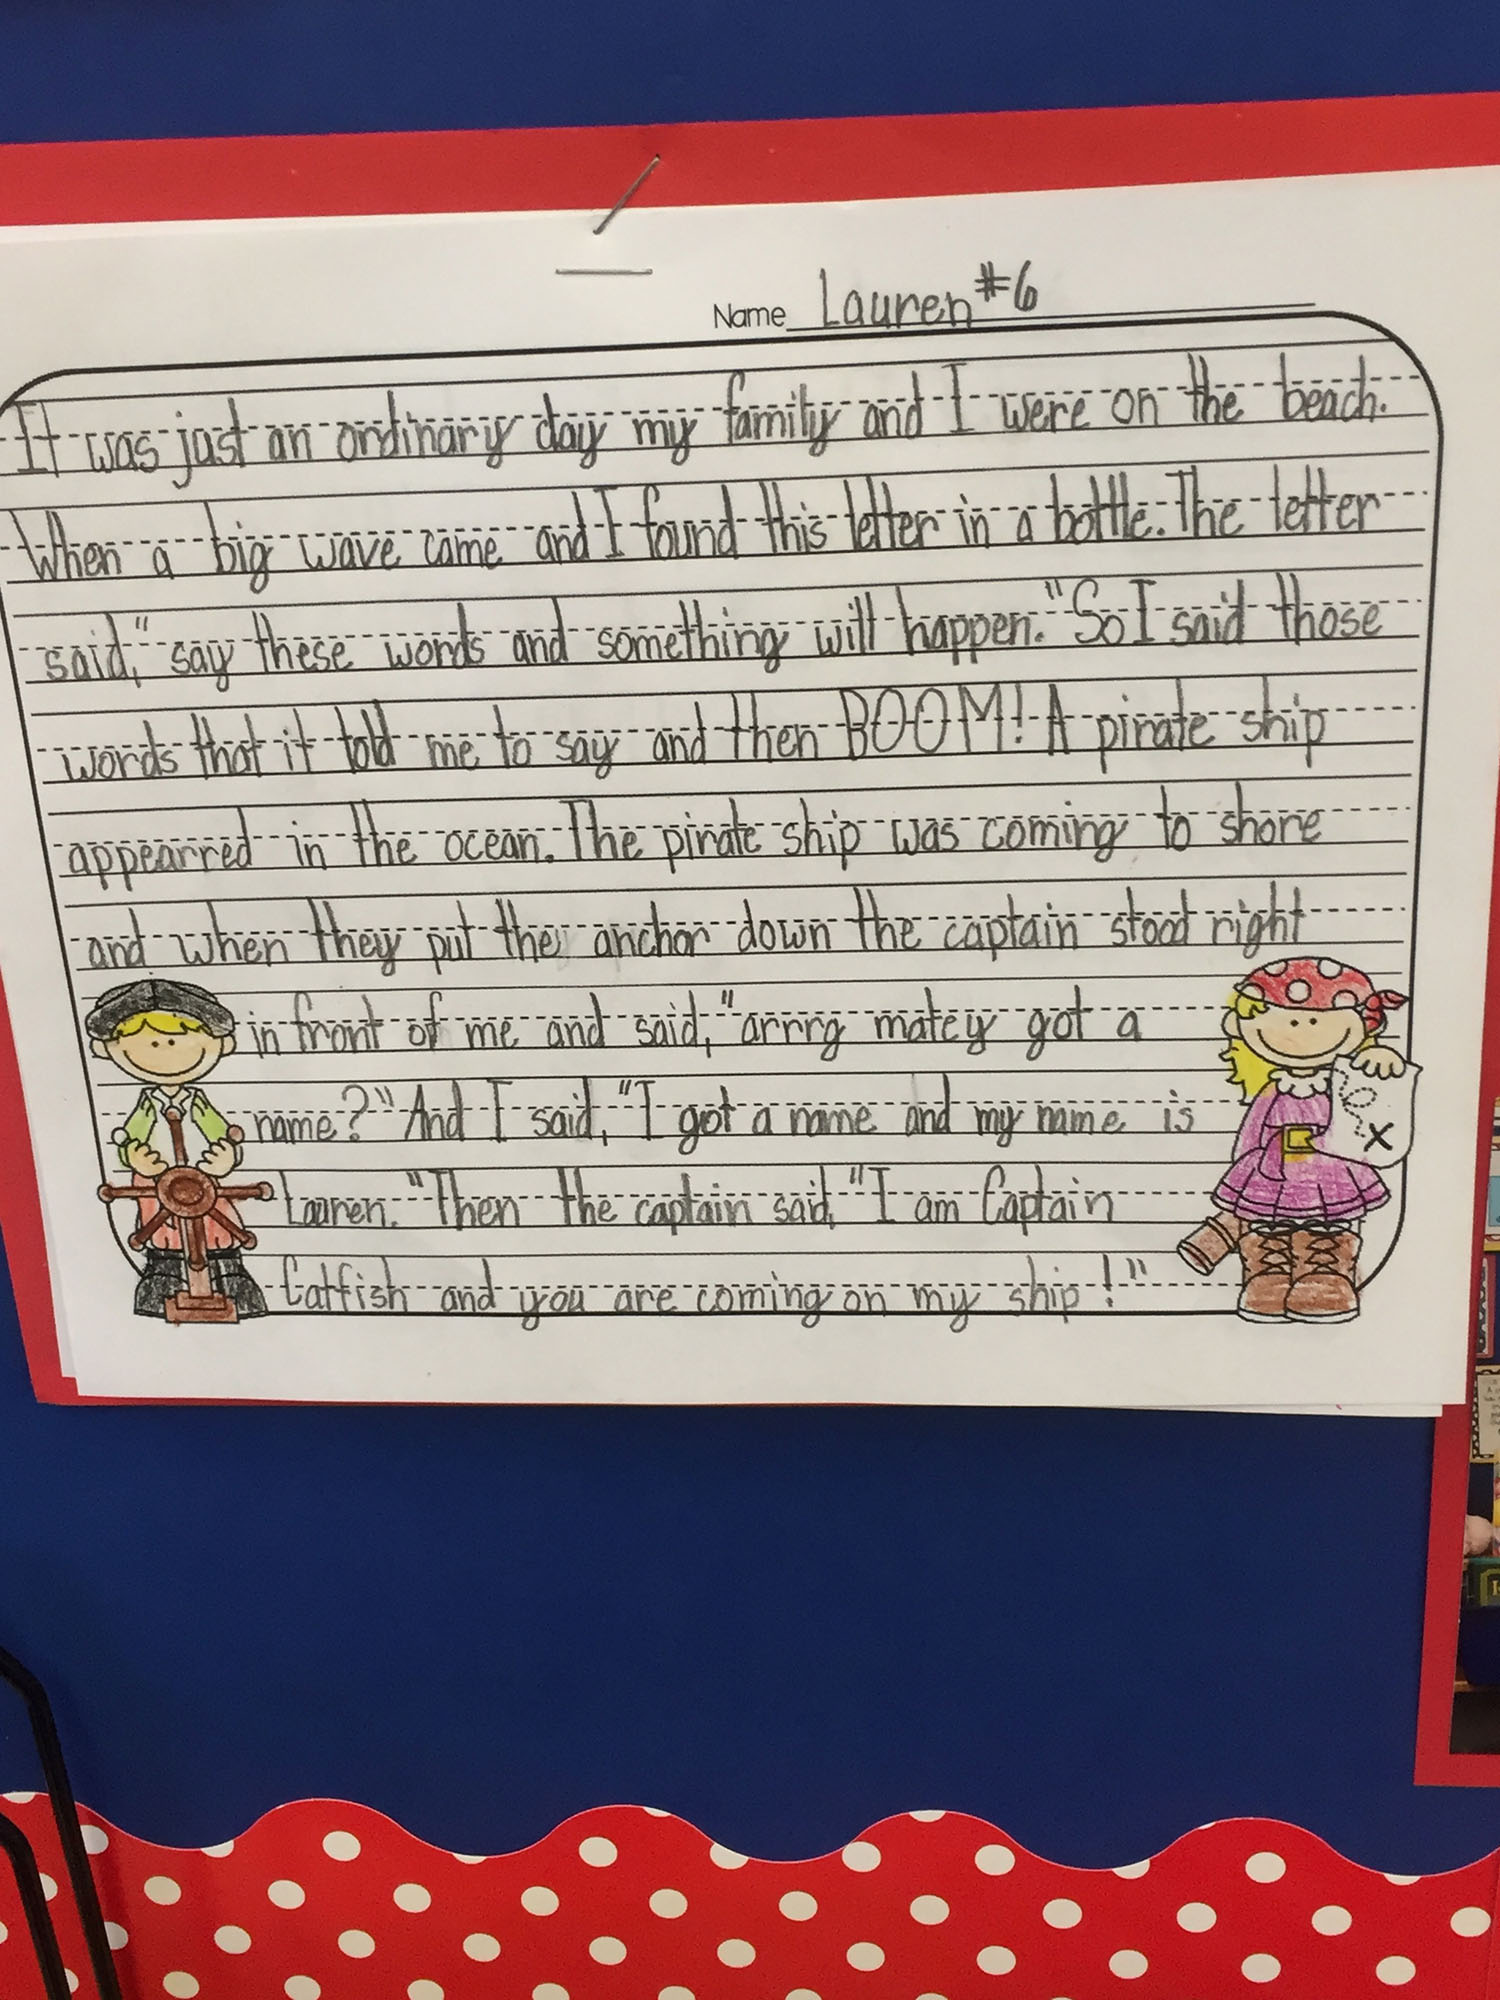 Name Lauren #6
It was just an ordinary day my family and I were on the beach.
When a big wave came and I found this letter in a bottle. The letter
said, "say these words and something will happen." So I said those
words that it told me to say and then BOOM! A pirate ship
appearred in the ocean. The pirate ship was coming to shore
and when they put the anchor down the captain stood right
in front of me and said, "arrrg matey got a
name?" And I said, "I got a name and my name is
Lauren." Then the captain said, "I am Captain
Catfish and you are coming on my ship!"
X